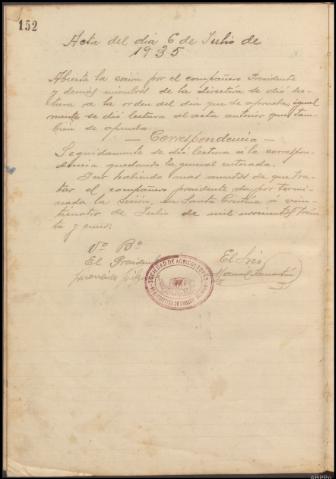 152
Acta del dia 6 de Julio de
1935
Abierta la sesión por el compañero Presidente
y demas miembros de la Directiva se dió lec-
tura a la orden del dia que se aprueba, igual
mente se dió lectura al acta anterior que tam-
bien se aprueba.
— Correspondencia —
Seguidamente se dió lectura a la correspon-
dencia quedando la general enterada.
No habiendo mas asuntos de que tra-
tar el compañero presidente da por termi-
nada la sesión, en Santa Cristina a
de Julio de mil novecientos trein-
ta y cinco.
Vº Bº
El Presidente
El Srio
Manuel
SOCIEDAD DE AGRICULTORES